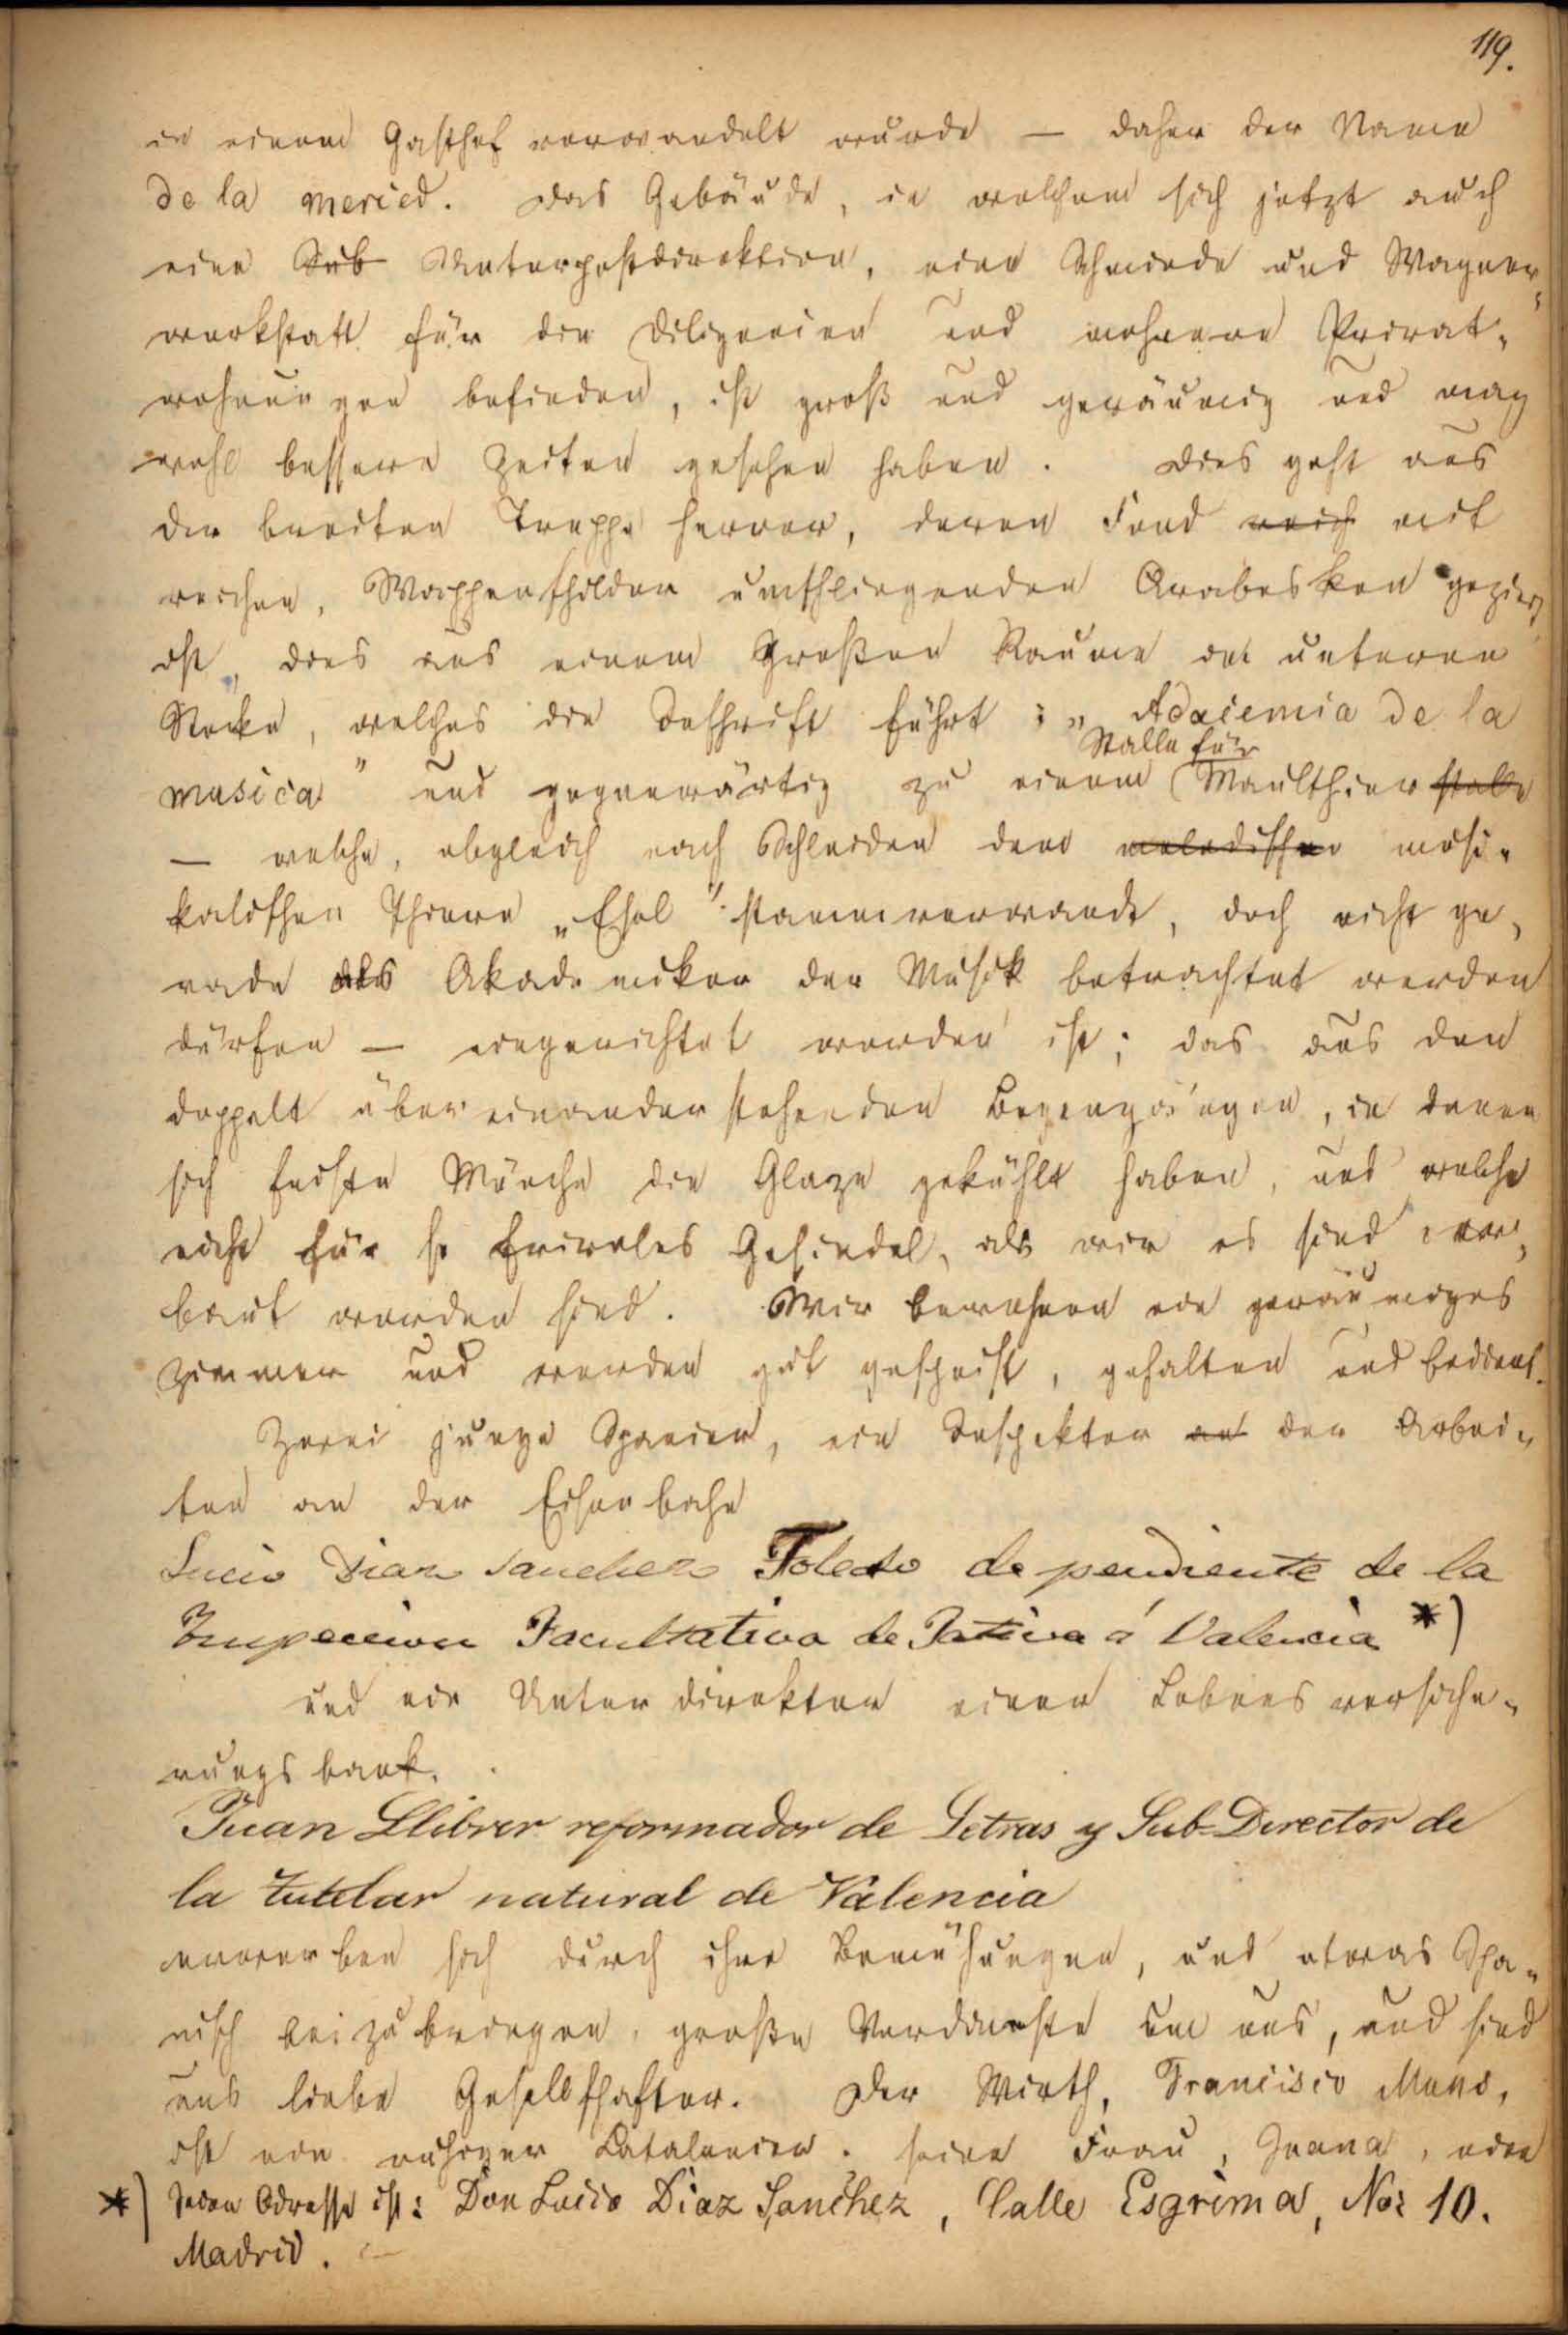 119.
in einem Gasthof verwandelt wurde — daher der Name
de la merced. Das Gebäude, in welchem sich jetzt auch
eine Sub Unterpostdirektion, eine Schmiede und Wagner,
werkstatt für die Diligencien und mehrere Privat,
wohnungen befinden, ist groß und geräumig und mag
wohl bessere Zeiten gesehen haben. Dies geht aus
der breiten Treppe hervor, deren Fond reich mit
reichen, Wappenschilder umschlingenden Arabesken geziert
ist, dies aus einem großen Raume im unteren
Stocke, welches die Inschrift führt: „Adacemia de la
Stalle für
musica" und gegenwärtig zu einem Maulthier stalle
— welche, obgleich nach Schleiden dem melodischen musi„
kalischen Thiere „Esel" stammverwandt, doch nicht ge,
rade als Akademiker der Musik betrachtet werden
dürfen — eingerichtet worden ist; das aus den
doppelt übereinander stehenden Bogengängen, in denen
sich feiste Mönche die Glaze gekühlt haben, und welche
nicht für so frivoles Gesindel, als wir es sind er,
baut worden sind. Wir bewohnen ein geräumiges
Zimmer und werden gut gespeist, gehalten und bedient.
Zwei junge Spanier, ein Inspektor an den Arbei„
ten an der Eisenbahn
Lucio Diaz Sanchez Toledo dependiente de la
Inspeccion Facultativa de Jativa á Valencia *)
und ein Unterdirektor einer Lebensversiche„
rungsbank.
Juan Llibrer reformador de Letras y Sub-Director de
la tutelar natural de Valencia
erwerben sich durch ihre Bemühungen, uns etwas Spa„
nisch beizubringen, große Verdienste um uns, und sind
uns liebe Gesellschafter. Der Wirth, Francisco Mans,
ist ein ruhiger Catalonier. seine Frau, Juana, eine
*) Seine Adresse ist: Don Lucio Diaz Sanchez, Calle Esgrima, No: 10.
Madrid. —